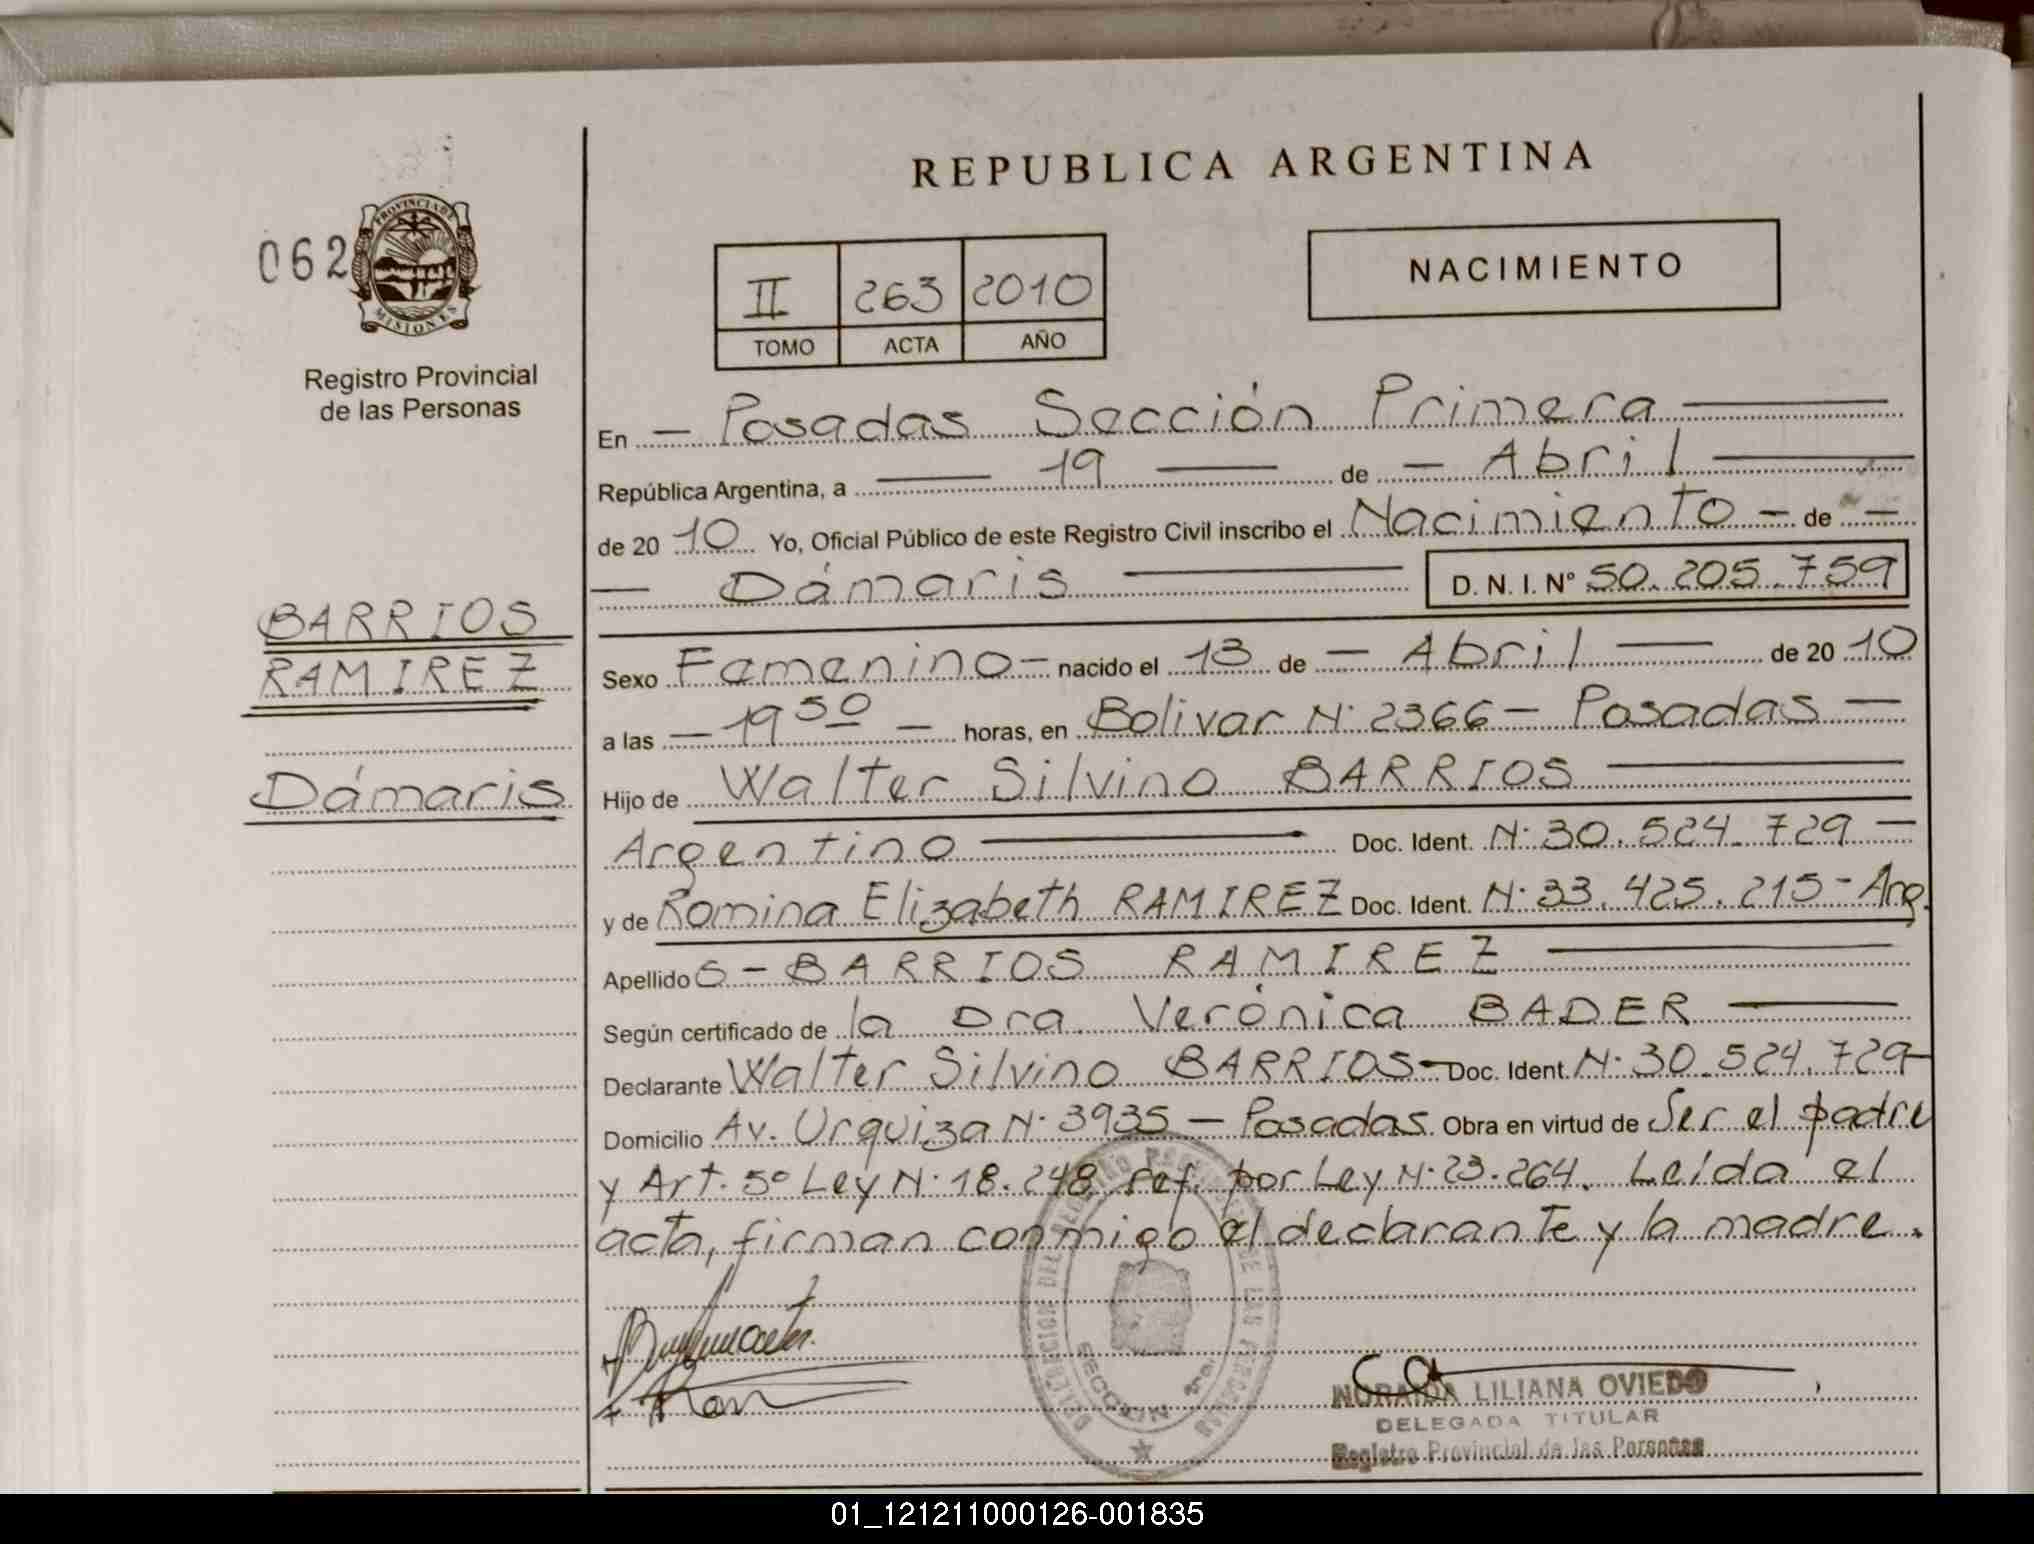 REPUBLICA ARGENTINA
062
PROVINCIA DE
MISIONES
Registro Provincial
de las Personas
II 263 2010
TOMO ACTA AÑO
NACIMIENTO
En - Posadas Sección Primera
República Argentina, a 19 de - Abril
de 20 10 Yo, Oficial Público de este Registro Civil inscribo el Nacimiento - de -
Dámaris D. N. I. N° 50.205.759
BARRIOS
RAMIREZ
Dámaris
Sexo Femenino - nacido el 13 de - Abril - de 20 10
a las - 19 50 - horas, en Bolivar N° 2366 - Posadas -
Hijo de Walter Silvino BARRIOS
Argentino Doc. Ident. N° 30.524.729 -
y de Romina Elizabeth RAMIREZ Doc. Ident. N° 33.425.215 - Arg.
Apellido S - BARRIOS RAMIREZ
Según certificado de la Dra. Verónica BADER
Declarante Walter Silvino BARRIOS - Doc. Ident. N° 30.524.729 -
Domicilio Av. Urquiza N° 3935 - Posadas. Obra en virtud de Ser el padre
y Art. 5° Ley N° 18.248 ref. por Ley N° 23.264. Leída el
acta, firman conmigo el declarante y la madre.
NORAIDA LILIANA OVIEDO
DELEGADA TITULAR
Registro Provincial de las Personas
01_121211000126-001835